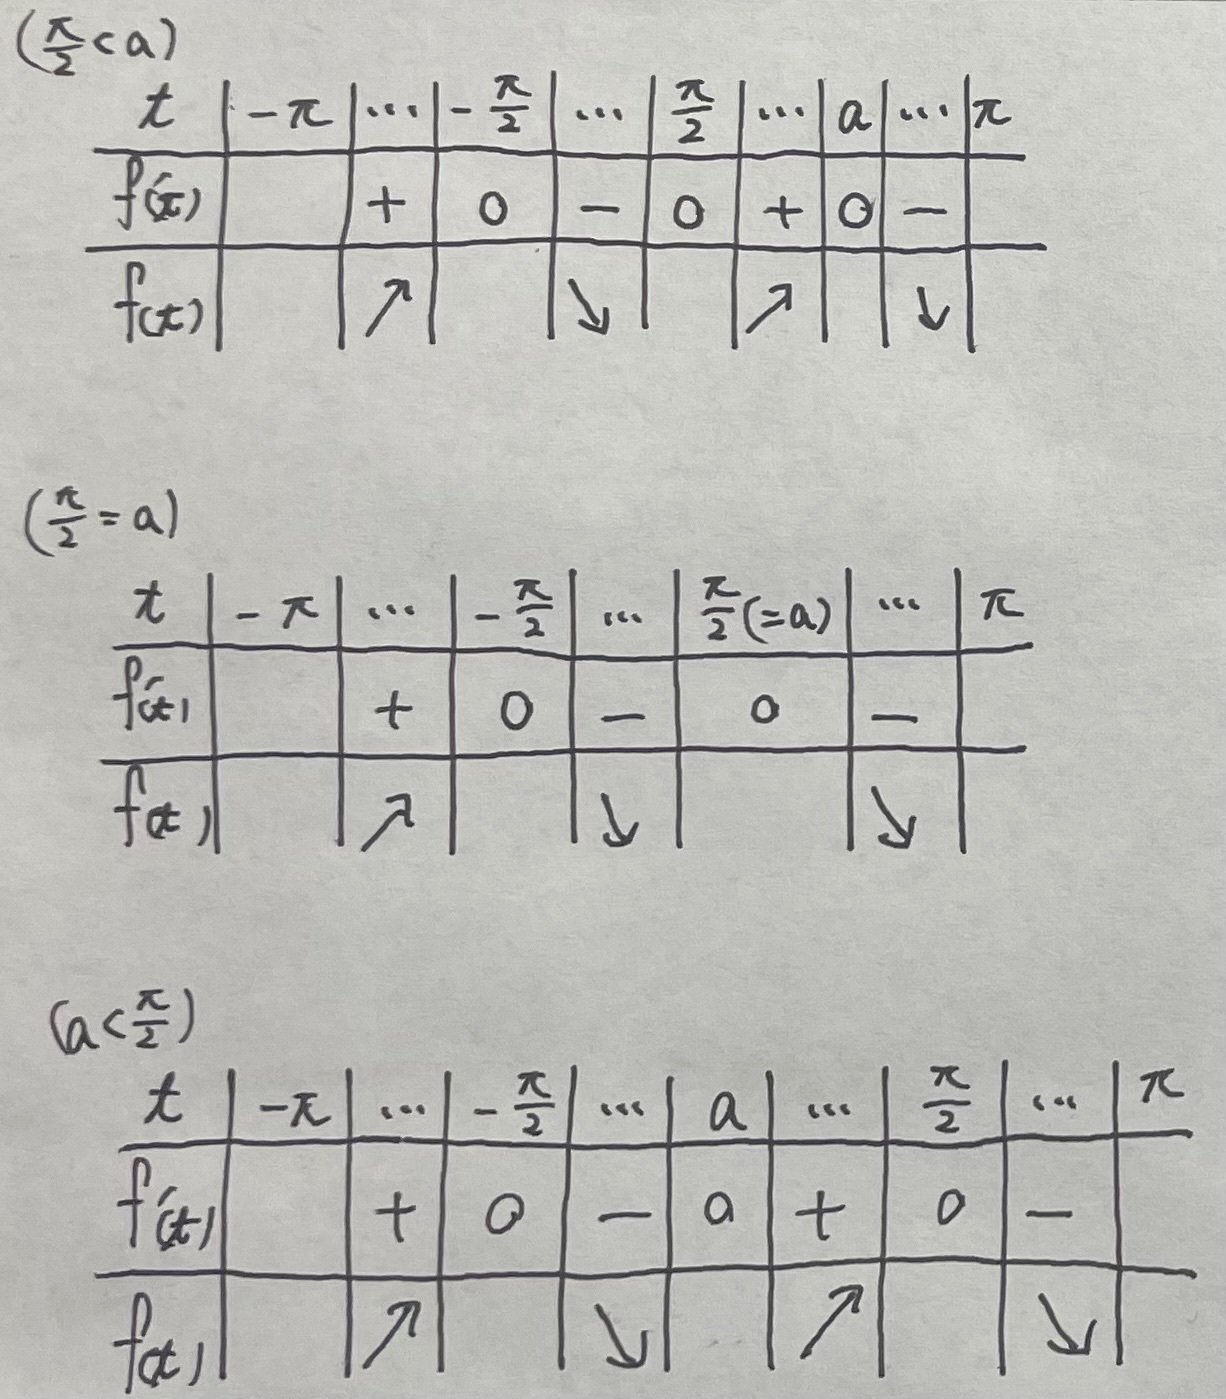 (π/2 < a)
t | -π | ... | -π/2 | ... | π/2 | ... | a | ... | π
f'(t) | | + | 0 | - | 0 | + | 0 | - |
f(t) | | ↗ | | ↘ | | ↗ | | ↘ |
(π/2 = a)
t | -π | ... | -π/2 | ... | π/2 (=a) | ... | π
f'(t) | | + | 0 | - | 0 | - |
f(t) | | ↗ | | ↘ | | ↘ |
(a < π/2)
t | -π | ... | -π/2 | ... | a | ... | π/2 | ... | π
f'(t) | | + | 0 | - | 0 | + | 0 | - |
f(t) | | ↗ | | ↘ | | ↗ | | ↘ |